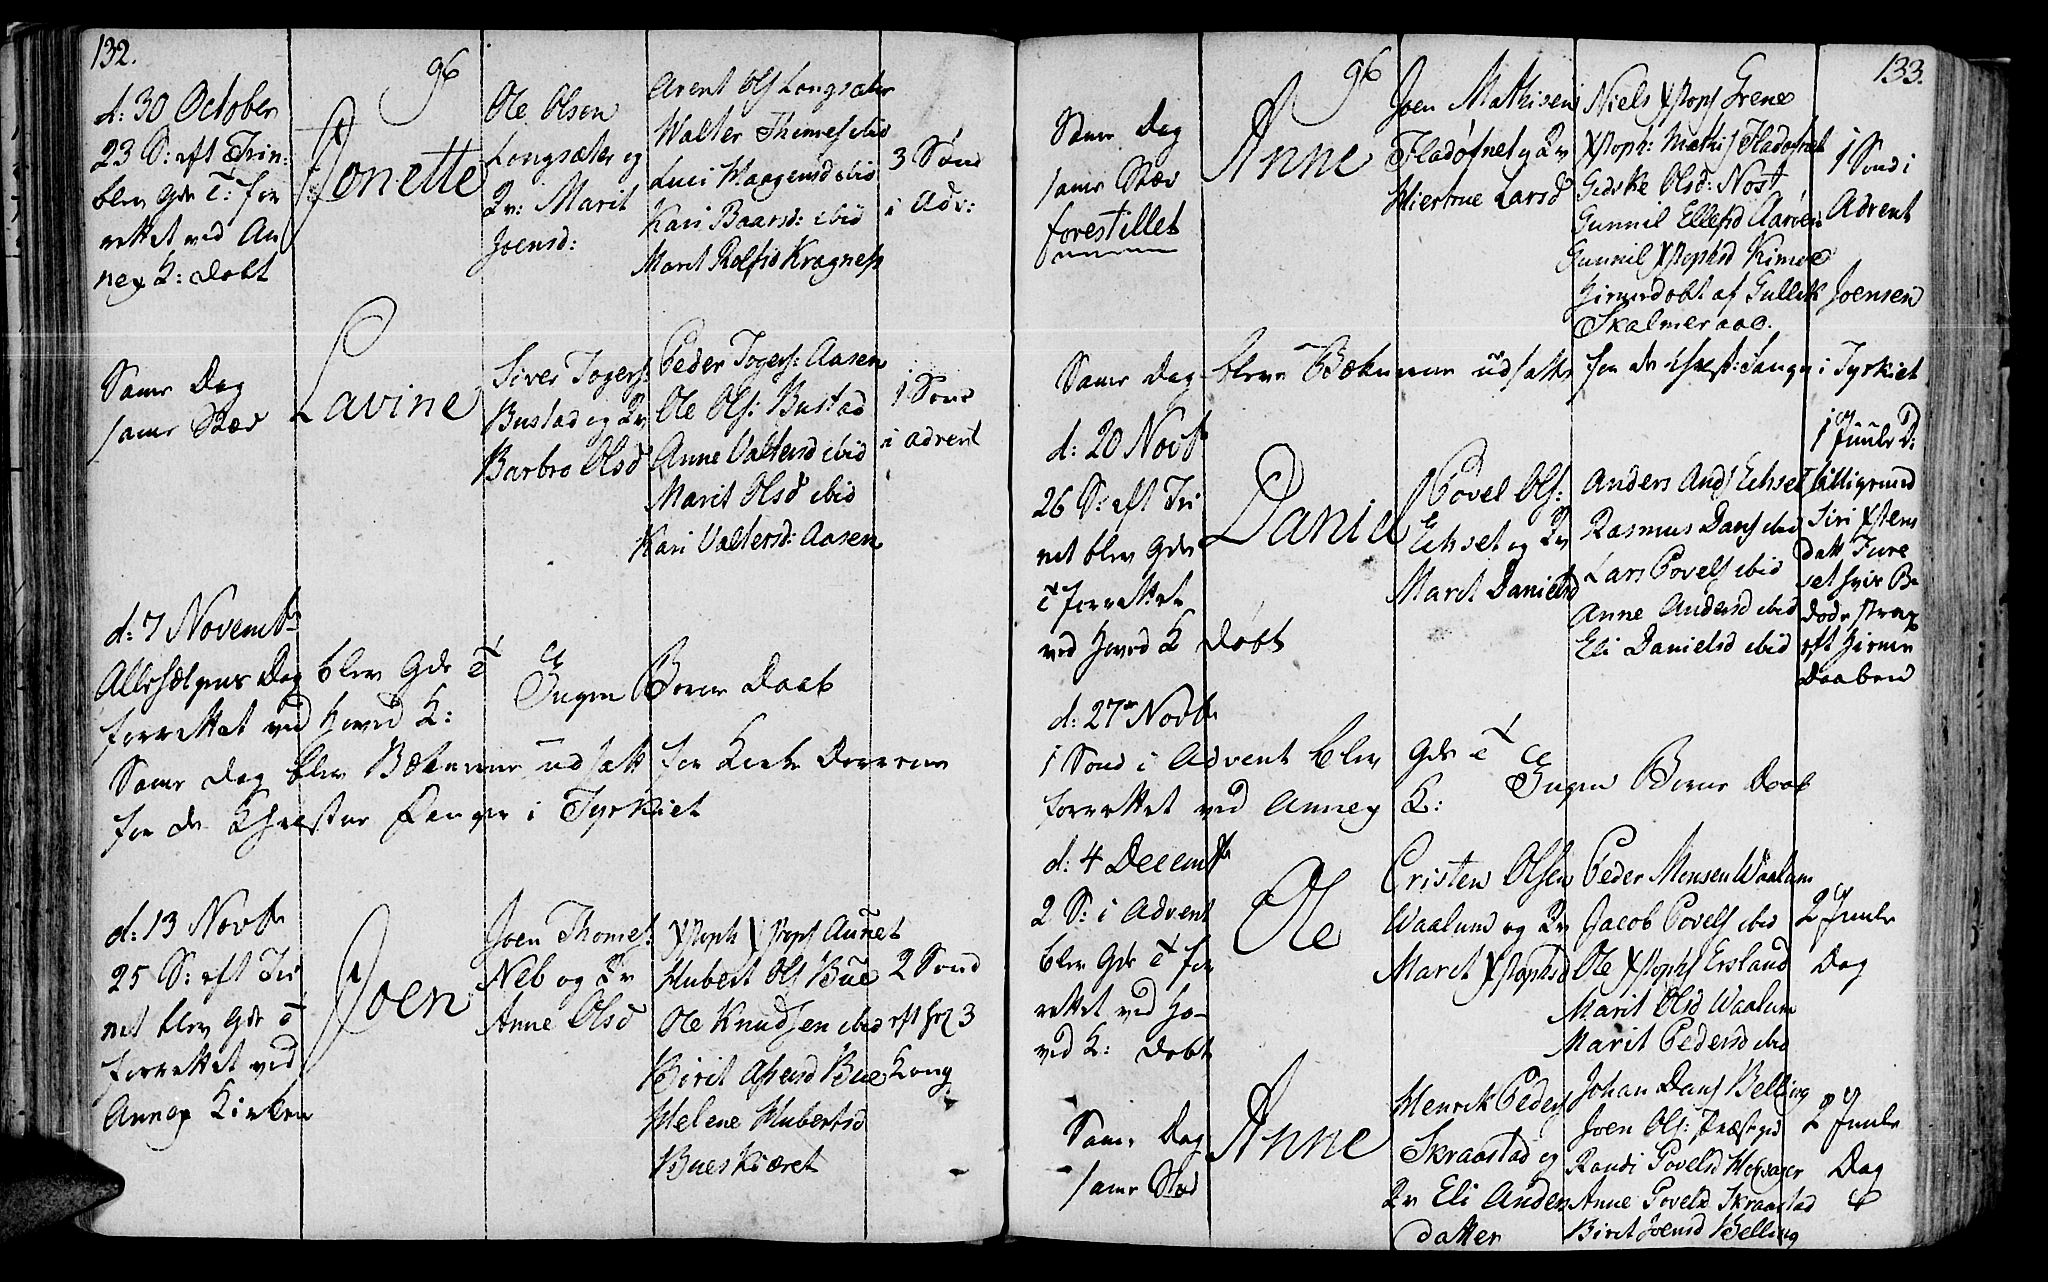 132.
96
d: 30 October
23 S: eft Trin:
blev Gds T: for
rettet ved An
nex K: Døbt
Jonette
Ole Olsen
Longsæter og
Qv: Marit
Joensd:
Arent Ols Longsæter
Walter Thomes ibid
Luci Haagensd ibid
Kari Baarsd: ibid
Marit Rolfsd Kragness
3 Sønd
i Adv:
Same Dag
same Stæd
Lavine
Siver Togers:
Bustad og Qv
Barbro Olsd
Peder Togers: Aasen
Ole Ols: Bustad
Anne Valtersd ibid
Marit Olsd ibid
Kari Valtersd: Aasen
1 Sønd
i advent
d: 7 Novembr
Allehelgens Dag blev Gds T
forrettet ved Hoved K:
Ingen Børne Daab
Same Dag blev Bæknerne udsatt for Kirke Dørrene
for de Christne Fanger i Tyrkiet
d: 13 Novbr
25 S: eft Tri
nit blev Gds T
forrettet ved
Annex Kirken
Joen
Joen Thomes:
Neb og Qv
Anne Olsd
Xstoph Xstophs Aunet
Hubert Ols Bue
Ole Knudsen ibid
Birit Ahensd Bue
Helene Hubertsd
Bueskiæret
2 Sønd
eft hel 3
Kong
133.
96
Same Dag
same Stæd
forestillet
Anne
Joen Mathisen
Fladøfnet og Qv
Hiertrue Larsd
Niels Xstophs Grene
Xstoph: Mathis Fladøfnet
Gidske Olsd: Nost
Gunnil Ellefsd Aarøen
Gunnil Xstophsd Kimoe
hiemedøbt af Gullik Joensen
Skalmeraae.
1 Sønd i
Advent
Same Dag bleve Bæknerne udsatte for de Christ: Fange i Tyrkiet
d: 20 Novbr
26 S: eft Tri
nit blev Gds
T forrettet
ved Hoved K Døbt
Daniel
Povel Ols:
Echset og Qv
Marit Danielsd
Anders Ands Echset
Rasmus Dans ibid
Lars Povels ibid
Anne Andersd ibid
Eli Danielsd ibid
1 Juule D:
tilligemed
Siri Xstens
datt Ture
set hvis B
døde strax
eft hieme
Daaben
d: 27de Novbr
1 Sønd i Advent blev Gds T
forrettet ved Annex K:
Ingen Børne Daab
d: 4 Decembr
2 S: i Advent
blev Gds T for
rettet ved Ho-
ved K: Døbt
Ole
Cristen Olsen
Waalum og Qv
Marit Xstophsd
Peder Monsen Waalum
Jacob Povels ibid
Ole Xstophs Ersland
Marit Olsd Waalum
Marit Pedersd ibid
2 Juule
Dag
Same Dag
same Stæd
Anne
Henrik Peders
Skraastad og
Qv Eli Anders
datter
Johan Dans Belling
Joen Ols: Præstgrd
Randi Povelsd Hoxaser
Anne Povelsd Skraastad
Birit Joensd Belling
2 Juule
Dag